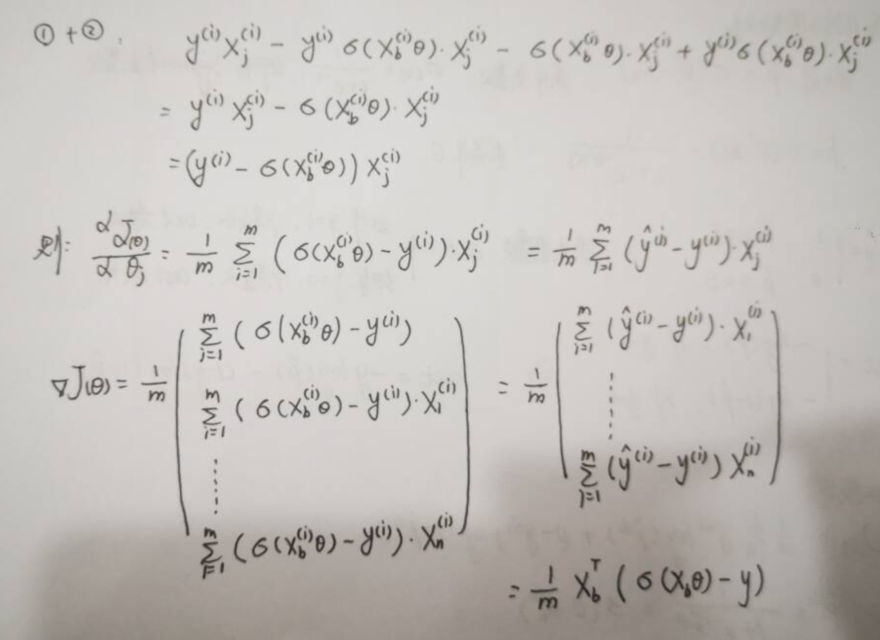 ①+②. y^{(i)}X_j^{(i)} - y^{(i)}σ(X_b^{(i)}θ)·X_j^{(i)} - σ(X_b^{(i)}θ)·X_j^{(i)} + y^{(i)}σ(X_b^{(i)}θ)·X_j^{(i)}
= y^{(i)}X_j^{(i)} - σ(X_b^{(i)}θ)·X_j^{(i)}
= (y^{(i)} - σ(X_b^{(i)}θ))X_j^{(i)}
则: \frac{αJ(θ)}{αθ_j} = \frac{1}{m}\sum_{i=1}^{m}(σ(X_b^{(i)}θ) - y^{(i)})·X_j^{(i)} = \frac{1}{m}\sum_{i=1}^{m}(\hat{y}^{(i)} - y^{(i)})·X_j^{(i)}
∇J(θ) = \frac{1}{m}\begin{pmatrix}\sum_{i=1}^{m}(σ(X_b^{(i)}θ) - y^{(i)}) \\ \sum_{i=1}^{m}(σ(X_b^{(i)}θ) - y^{(i)})·X_1^{(i)} \\ ...... \\ \sum_{i=1}^{m}(σ(X_b^{(i)}θ) - y^{(i)})·X_n^{(i)}\end{pmatrix} = \frac{1}{m}\begin{pmatrix}\sum_{i=1}^{m}(\hat{y}^{(i)} - y^{(i)})·X_1^{(i)} \\ ...... \\ \sum_{i=1}^{m}(\hat{y}^{(i)} - y^{(i)})X_n^{(i)}\end{pmatrix}
= \frac{1}{m}X_b^T(σ(X_bθ) - y)